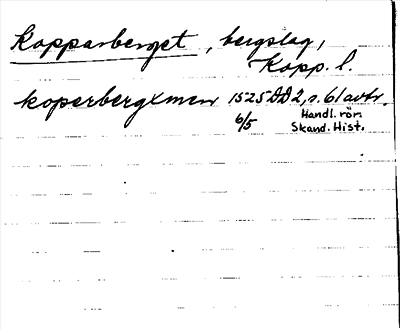 Kopparberget, bergslag,
Kopp. l.
koperbergxmen 1525 DD 2, s. 61 avtr.
6/5 Handl. rör.
Skand. Hist.